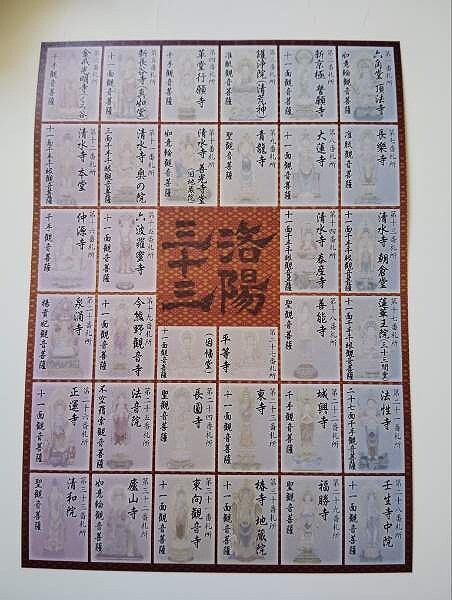 第一番札所
六角堂 頂法寺
如意輪觀音菩薩
第二番札所
新京極 誓願寺
十一面觀音菩薩
第三番札所
護浄院(清荒神)
准胝觀音菩薩
第四番札所
革堂行願寺
千手觀音菩薩
第五番札所
新長谷寺(真如堂)
十一面觀音菩薩
第六番札所
金戒光明寺(くろ谷)
千手觀音菩薩
第七番札所
長樂寺
准胝觀音菩薩
第八番札所
大蓮寺
十一面觀音菩薩
第九番札所
青龍寺
聖觀音菩薩
第十番札所
清水寺 善光寺堂
(旧地蔵院)
如意輪觀音菩薩
第十一番札所
清水寺 奥の院
三面千手千眼觀音菩薩
第十二番札所
清水寺 本堂
十一面千手千眼觀音菩薩
第十三番札所
清水寺 朝倉堂
十一面千手千眼觀音菩薩
第十四番札所
清水寺 泰産寺
十一面千手千眼觀音菩薩
洛陽
三十三
第十五番札所
六波羅蜜寺
十一面觀音菩薩
第十六番札所
仲源寺
千手觀音菩薩
第十七番札所
蓮華王院(三十三間堂)
十一面千手千眼觀音菩薩
第十八番札所
善能寺
聖觀音菩薩
第二十七番札所
平等寺
(因幡堂)
十一面觀音菩薩
第十九番札所
今熊野觀音寺
十一面觀音菩薩
第二十番札所
泉涌寺
楊貴妃觀音菩薩
第二十一番札所
法性寺
二十七面千手觀音菩薩
第二十二番札所
城興寺
千手觀音菩薩
第二十三番札所
東寺
十一面觀音菩薩
第二十四番札所
長圓寺
聖觀音菩薩
第二十五番札所
法音院
不空羂索觀音菩薩
第二十六番札所
正運寺
十一面觀音菩薩
第二十八番札所
壬生寺中院
十一面觀音菩薩
第二十九番札所
福勝寺
聖觀音菩薩
第三十番札所
椿寺 地蔵院
十一面觀音菩薩
第三十一番札所
東向觀音寺
十一面觀音菩薩
第三十二番札所
廬山寺
如意輪觀音菩薩
第三十三番札所
清和院
聖觀音菩薩